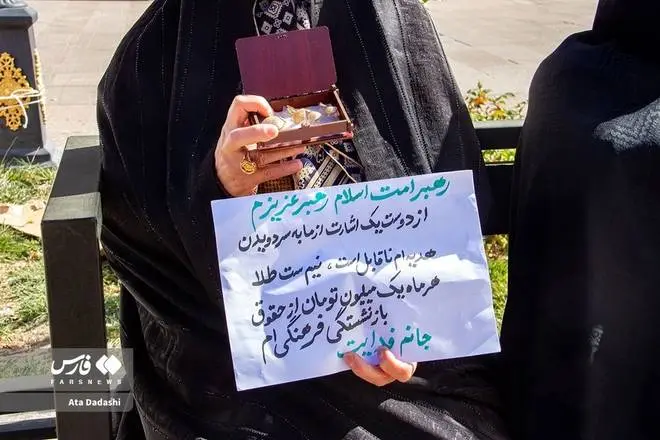 رهبر امت اسلام رهبر عزیزم
از دوست یک اشارت از ما به سر دویدن
هدیه ام ناقابل است، نیم ست طلا
هر ماه یک میلیون تومان از حقوق
بازنشستگی فرهنگی ام
جانم فدایت
فارس
FARSNEWS
Ata Dadashi